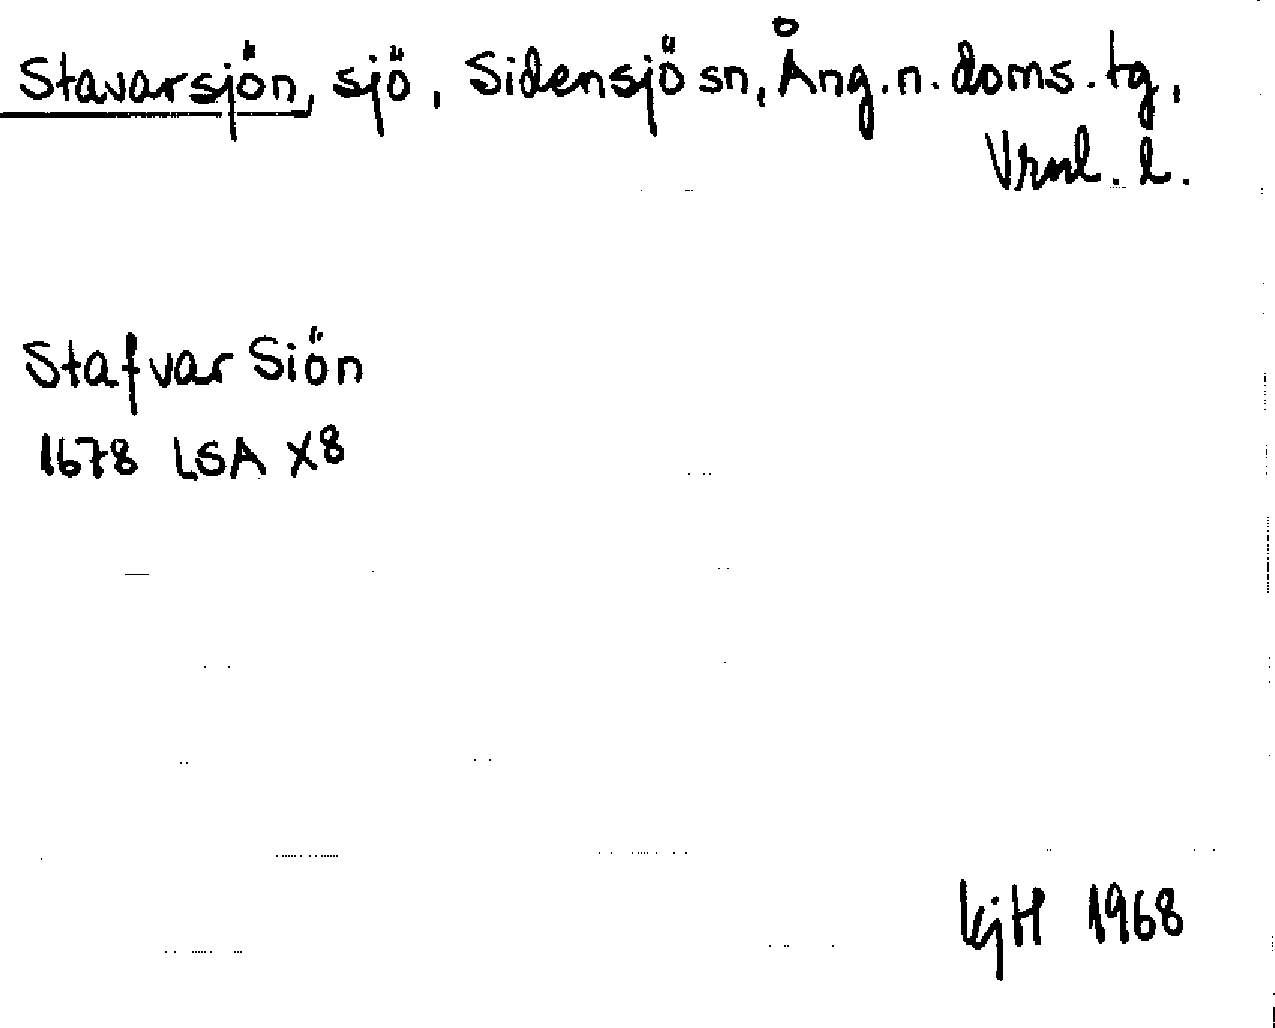 Stavarsjön, sjö, Sidensjö sn, Ång.n.doms.tg,
Vrnl. l.
Stafvar Siön
1678 LSA X8
KjH 1968